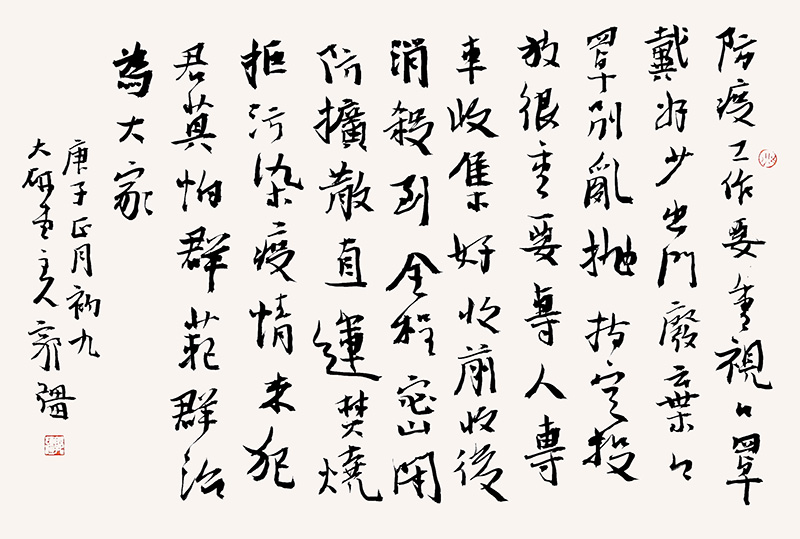 防疫工作要重視口罩
戴好少出門廢棄口
罩別亂拋指定投
放很重要專人專
車收集好收前收後
消殺到全程密閉
防擴散直運焚燒
拒污染疫情來犯
君莫怕群範群治
為大家
庚子正月初九
大研主人郭疆